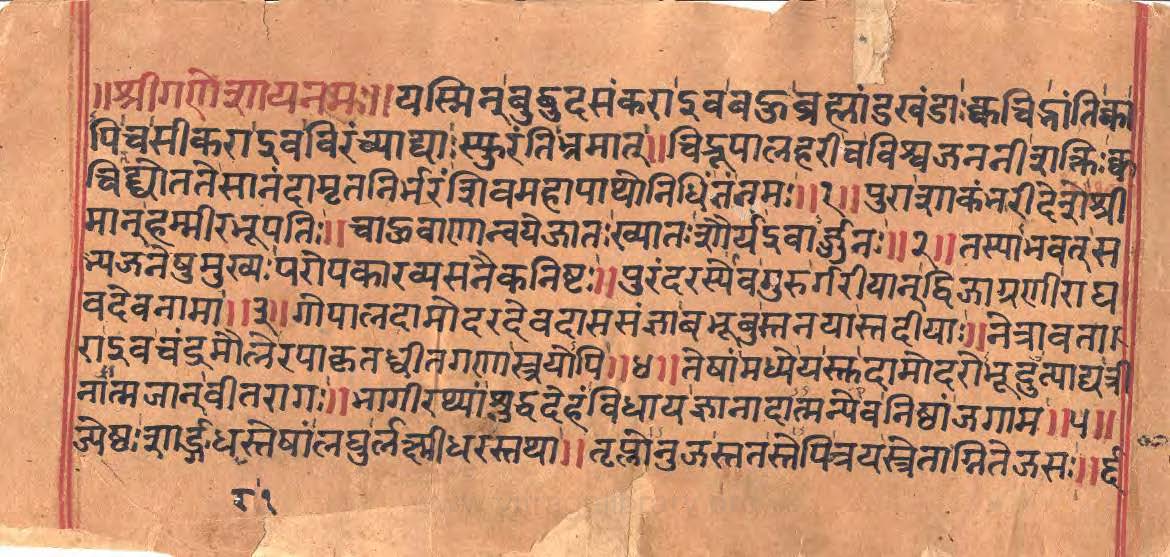 ॥श्रीगणेशायनमः॥यस्मिन्बुद्बुदसंकराइवबऊब्रह्मांडखंडाःक्वचिद्भांतिक्वा
पिचसीकराइवविरंच्याद्याःस्फुरंतिभ्रमात्॥चिद्रूपालहरीवविश्वजननीशक्तिःक्व
चिद्द्योततेसानंदामृतनिर्भरंशिवमहापाथोनिधिंतंनमः॥१॥पुराशाकंभरीदेशेश्री
मान्हम्मीरभूपतिः॥चाऊवाणान्वयेजातःख्यातःशौर्यइवार्ज्जुनः॥२॥तस्याभवत्स
भ्यजनेषुमुख्यःपरोपकारव्यसनैकनिष्टः॥पुरंदरस्येवगुरुर्गरीयान्द्विजाग्रणीराघ
वदेवनामा॥३॥गोपालदामोदरदेवदाससंज्ञाबभूबुस्तनयास्तदीयाः॥नेत्रावता
राइवचंद्रमौलेरपाकृतध्वीतगणास्त्रयोपि॥४॥तेषांमध्येयस्तदामोदरोभूदुत्पाद्यत्री
नात्मजान्वीतरागः॥भागीरथ्यांशुद्धदेहंविधायज्ञानादात्मन्येवनिष्ठांजगाम॥५॥
ज्येष्ठःशार्ङ्गधस्तेषांलघुर्लक्ष्मीधरस्तथा॥तृप्तोनुजस्ततस्तेपित्रयस्त्रेताग्नितेजसः॥र्इ